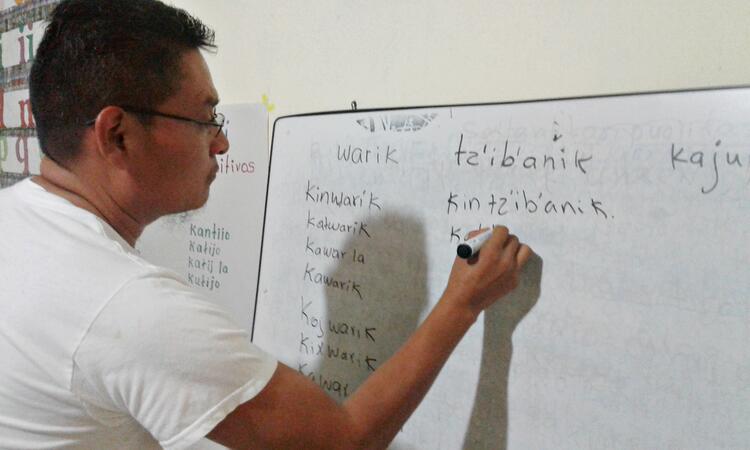 warik
kinwarik
katwarik
kawar la
kawarik
Kojwarik
kixwarik
kawar
tz'ib'anik
kin tz'ib'anik.
kaju
itivos
kantijo
katijo
katij la
kutijo